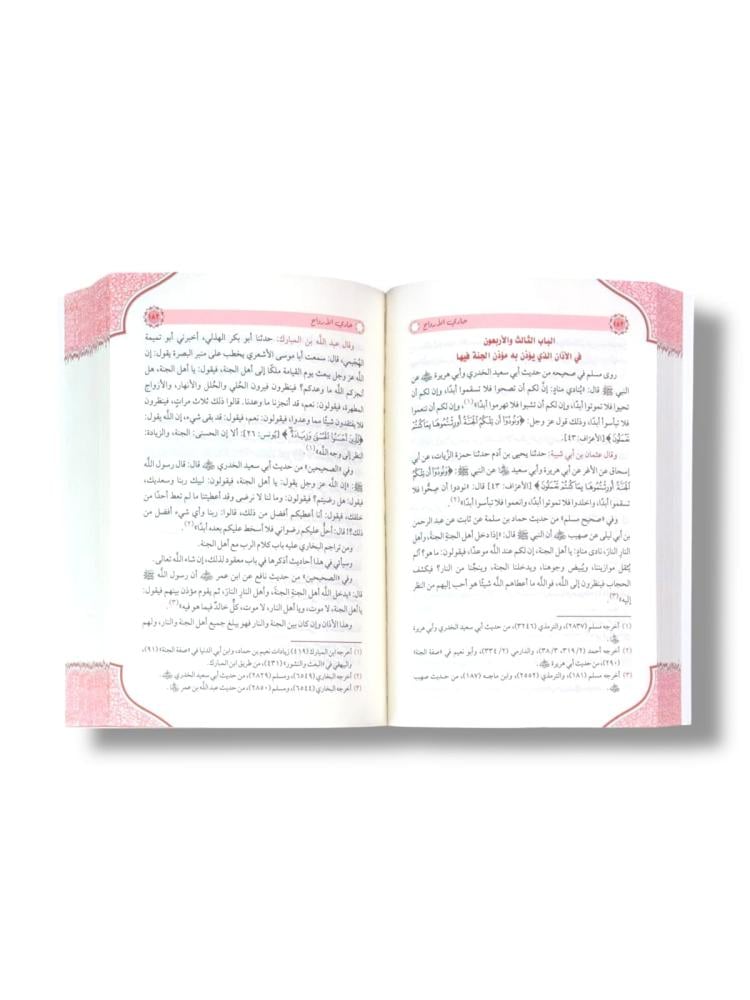 حادي الأرواح
الباب الثالث والأربعون
في الأذان الذي يؤذن به مؤذن الجنة فيها
روى مسلم في صحيحه من حديث أبي سعيد الخدري وأبي هريرة ﵁ عن
النبي ﷺ قال: «يُنادي منادٍ: إنَّ لكم أن تصحوا فلا تسقموا أبدًا، وإن لكم أن
تحيوا فلا تموتوا أبدًا، وإن لكم أن تشبوا فلا تهرموا أبدًا»(١)، وإن لكم أن تنعموا
فلا تبأسوا أبدًا، وذلك قول عز وجل: ﴿وَنُودُوٓا۟ أَن تِلْكُمُ ٱلْجَنَّةُ أُورِثْتُمُوهَا بِمَا كُنتُمْ
تَعْمَلُونَ﴾ [الأعراف: ٤٣].
وقال عثمان بن أبي شيبة: حدثنا يحيى بن آدم حدثنا حمزة الزَّيات، عن أبي
إسحاق عن الأغر عن أبي هريرة وأبي سعيد ﵁ عن النبي ﷺ: ﴿وَنُودُوٓا۟ أَن تِلْكُمُ
ٱلْجَنَّةُ أُورِثْتُمُوهَا بِمَا كُنتُمْ تَعْمَلُونَ﴾ [الأعراف: ٤٣] قال: «نودوا أن صِحُّوا فلا
تسقموا أبدًا، واخلدوا فلا تموتوا أبدًا، وانعموا فلا تبأسوا أبدًا»(٢).
وفي «صحيح مسلم» من حديث حماد بن سلمة عن ثابت عن عبد الرحمن
بن أبي ليلى عن صهيب أن النبي ﷺ قال: «إذا دخل أهلُ الجنةِ الجنةَ، وأهل
النارِ النارَ، نادى منادٍ: يا أهل الجنة، إن لكم عند الله موعدًا، فيقولون: ما هو؟ ألم
يُثقل موازيننا، ويُبيض وجوهنا، ويدخلنا الجنة، وينجِّنا من النار؟ فيكشف
الحجاب فينظرون إلى الله، فوالله ما أعطاهم الله شيئًا هو أحب إليهم من النظر
إليه»(٣).
(١) أخرجه مسلم (٢٨٣٧)، والترمذي (٣٢٤٦)، من حديث أبي سعيد الخدري وأبي هريرة
﵁.
(٢) أخرجه أحمد (٣١٩/٢، ٣٨/٣)، والدارمي (٣٣٤/٢)، وأبو نعيم في «صفة الجنة»
(٢٩٠)، من حديث أبي هريرة ﵁.
(٣) أخرجه مسلم (١٨١)، والترمذي (٢٥٥٢)، وابن ماجه (١٨٧)، من حديث صهيب
﵁.
حادي الأرواح
وقال عبد الله بن المبارك: حدثنا أبو بكر الهذلي، أخبرني أبو تميمة
الهُجَيمي، قال: سمعت أبا موسى الأشعري يخطب على منبر البصرة يقول: إن
الله عز وجل يبعث يوم القيامة ملكًا إلى أهل الجنة، فيقول: يا أهل الجنة، هل
أنجزكم الله ما وعدكم؟ فينظرون فيرون الحُلي والحُلل والأنهار، والأزواج
المطهرة، فيقولون: نعم، قد أنجزنا ما وعدنا. قالوا ذلك ثلاث مراتٍ، فينظرون
فلا يفتقدون شيئًا مما وعدوا، فيقولون: نعم، فيقول: قد بقي شيء، إن الله يقول:
﴿لِّلَّذِينَ أَحْسَنُوا۟ ٱلْحُسْنَىٰ وَزِيَادَةٌ﴾ [يونس: ٢٦]: ألا إن الحسنى: الجنة، والزيادة:
النظر إلى وجه الله»(١)
وفي «الصحيحين» من حديث أبي سعيد الخدري ﵁ قال: قال رسول الله
ﷺ: «إن الله عز وجل يقول: يا أهل الجنة، فيقولون: لبيك ربنا وسعديك،
فيقول: هل رضيتم؟ فيقولون: وما لنا لا نرضى وقد أعطيتنا ما لم تعط أحدًا من
خلقك، فيقول: أنا أعطيكم أفضل من ذلك، قالوا: ربنا وأي شيء أفضل من
ذلك؟! قال: أحل عليكم رضواني فلا أسخط عليكم بعده أبدًا»(٢)
ومن تراجم البخاري عليه باب كلام الرب مع أهل الجنة.
وسيأتي في هذا أحاديث أذكرها في باب معقود لذلك، إن شاء الله تعالى.
وفي «الصحيحين» من حديث نافع عن ابن عمر ﵁ أن رسول الله ﷺ
قال: «يدخل الله أهل الجنةِ الجنةَ، وأهل النارِ النارَ، ثم يقوم مؤذن بينهم فيقول:
يا أهل الجنة، لا موت، ويا أهل النار، لا موت، كلٌّ خالدٌ فيما هو فيه»(٣)
وهذا الأذان وإن كان بين الجنة والنار فهو يبلغ جميع أهل الجنة والنار، ولهم
(١) أخرجه ابن المبارك (٤١٩) زيادات نعيم بن حماد، وابن أبي الدنيا في «صفة الجنة» (٩١)،
والبيهقي في «البعث والنشور» (٤٣١)، من طريق ابن المبارك.
(٢) أخرجه البخاري (٦٥٤٩)، ومسلم (٢٨٢٩)، من حديث أبي سعيد الخدري ﵁.
(٣) أخرجه البخاري (٦٥٤٤)، ومسلم (٢٨٥٠)، من حديث عبد الله بن عمر ﵄.